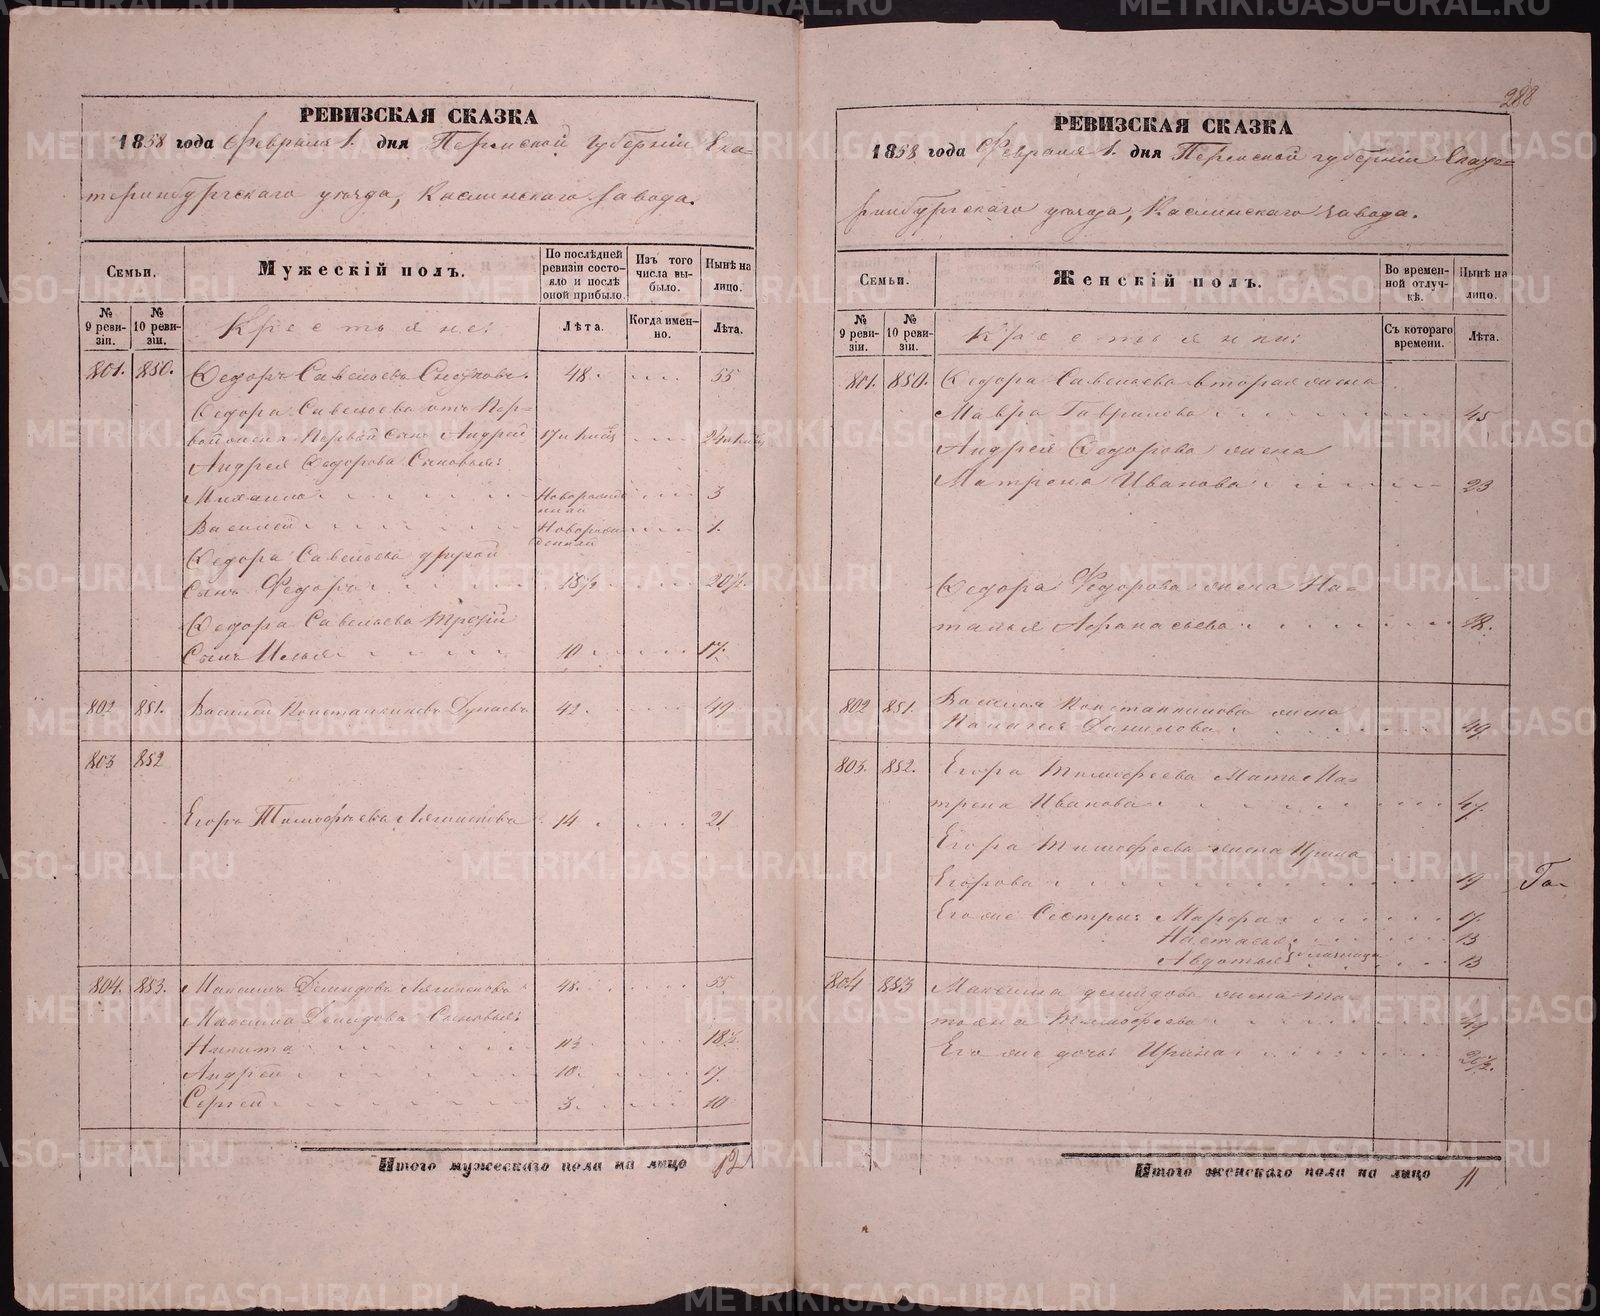 288
РЕВИЗСКАЯ СКАЗКА
1858 года Февраля 1. дня Пермской губерніи Ека-
теринбургскаго уезда, Каслинскаго завода.
Семьи.
Мужескій полъ.
По послѣдней ревизіи состояло и послѣ оной прибыло.
Изъ того числа выбыло.
Нынѣ на лицо.
№ 9 ревизіи.
№ 10 ревизіи.
Крестьяне:
Лѣта.
Когда именно.
Лѣта.
801. 850. Федоръ Савельевъ 48. 55
Федора Савельева отъ пер-
вой жены первой сынъ Андрей 17 24
Андрея Федорова сыновья:
Михаило Новорожденный 3
Василей Новорожденный 1.
Федора Савельева другой
сынъ Федоръ
Федора Савельева третій
сынъ Илья 10 17.
802 851. Василей Константиновъ Дунаевъ 42. 49
803 852
Егоръ Тимофѣевъ 14 21
804. 853. Максимъ Демидовъ 48. 55
Максима Демидова сыновья:
Никита 11½ 18½
Андрей 10. 17
Сергей 3. 10
Итого мужескаго пола на лицо 12
РЕВИЗСКАЯ СКАЗКА
1858 года Февраля 1. дня Пермской губерніи Екате-
ринбургскаго уезда, Каслинскаго завода.
Семьи.
Женскій полъ.
Во временной отлучкѣ.
Нынѣ на лицо.
№ 9 ревизіи.
№ 10 ревизіи.
Крестьянки:
Съ котораго времени.
Лѣта.
801. 850. Федора Савельева вторая жена
Мавра Гаврилова 45
Андрея Федорова жена
Матрена Иванова 23
Федора Федорова жена На-
талья Афанасьева 18.
802 851. Василья Константинова жена
Данилова 49
803. 852. Егора Тимофеева мать Ма-
трена Иванова 47
Егора Тимофеева жена Ирина
Егорова 19
Его же сестры: Марфа 17.
Настасья 13
Авдотья 13
Га-
804 853 Максима Демидова жена Та-
тьяна Тимофеева 49
Его же дочь Ирина 20½.
Итого женскаго пола на лицо 11
METRIKI.GASO-URAL.RU